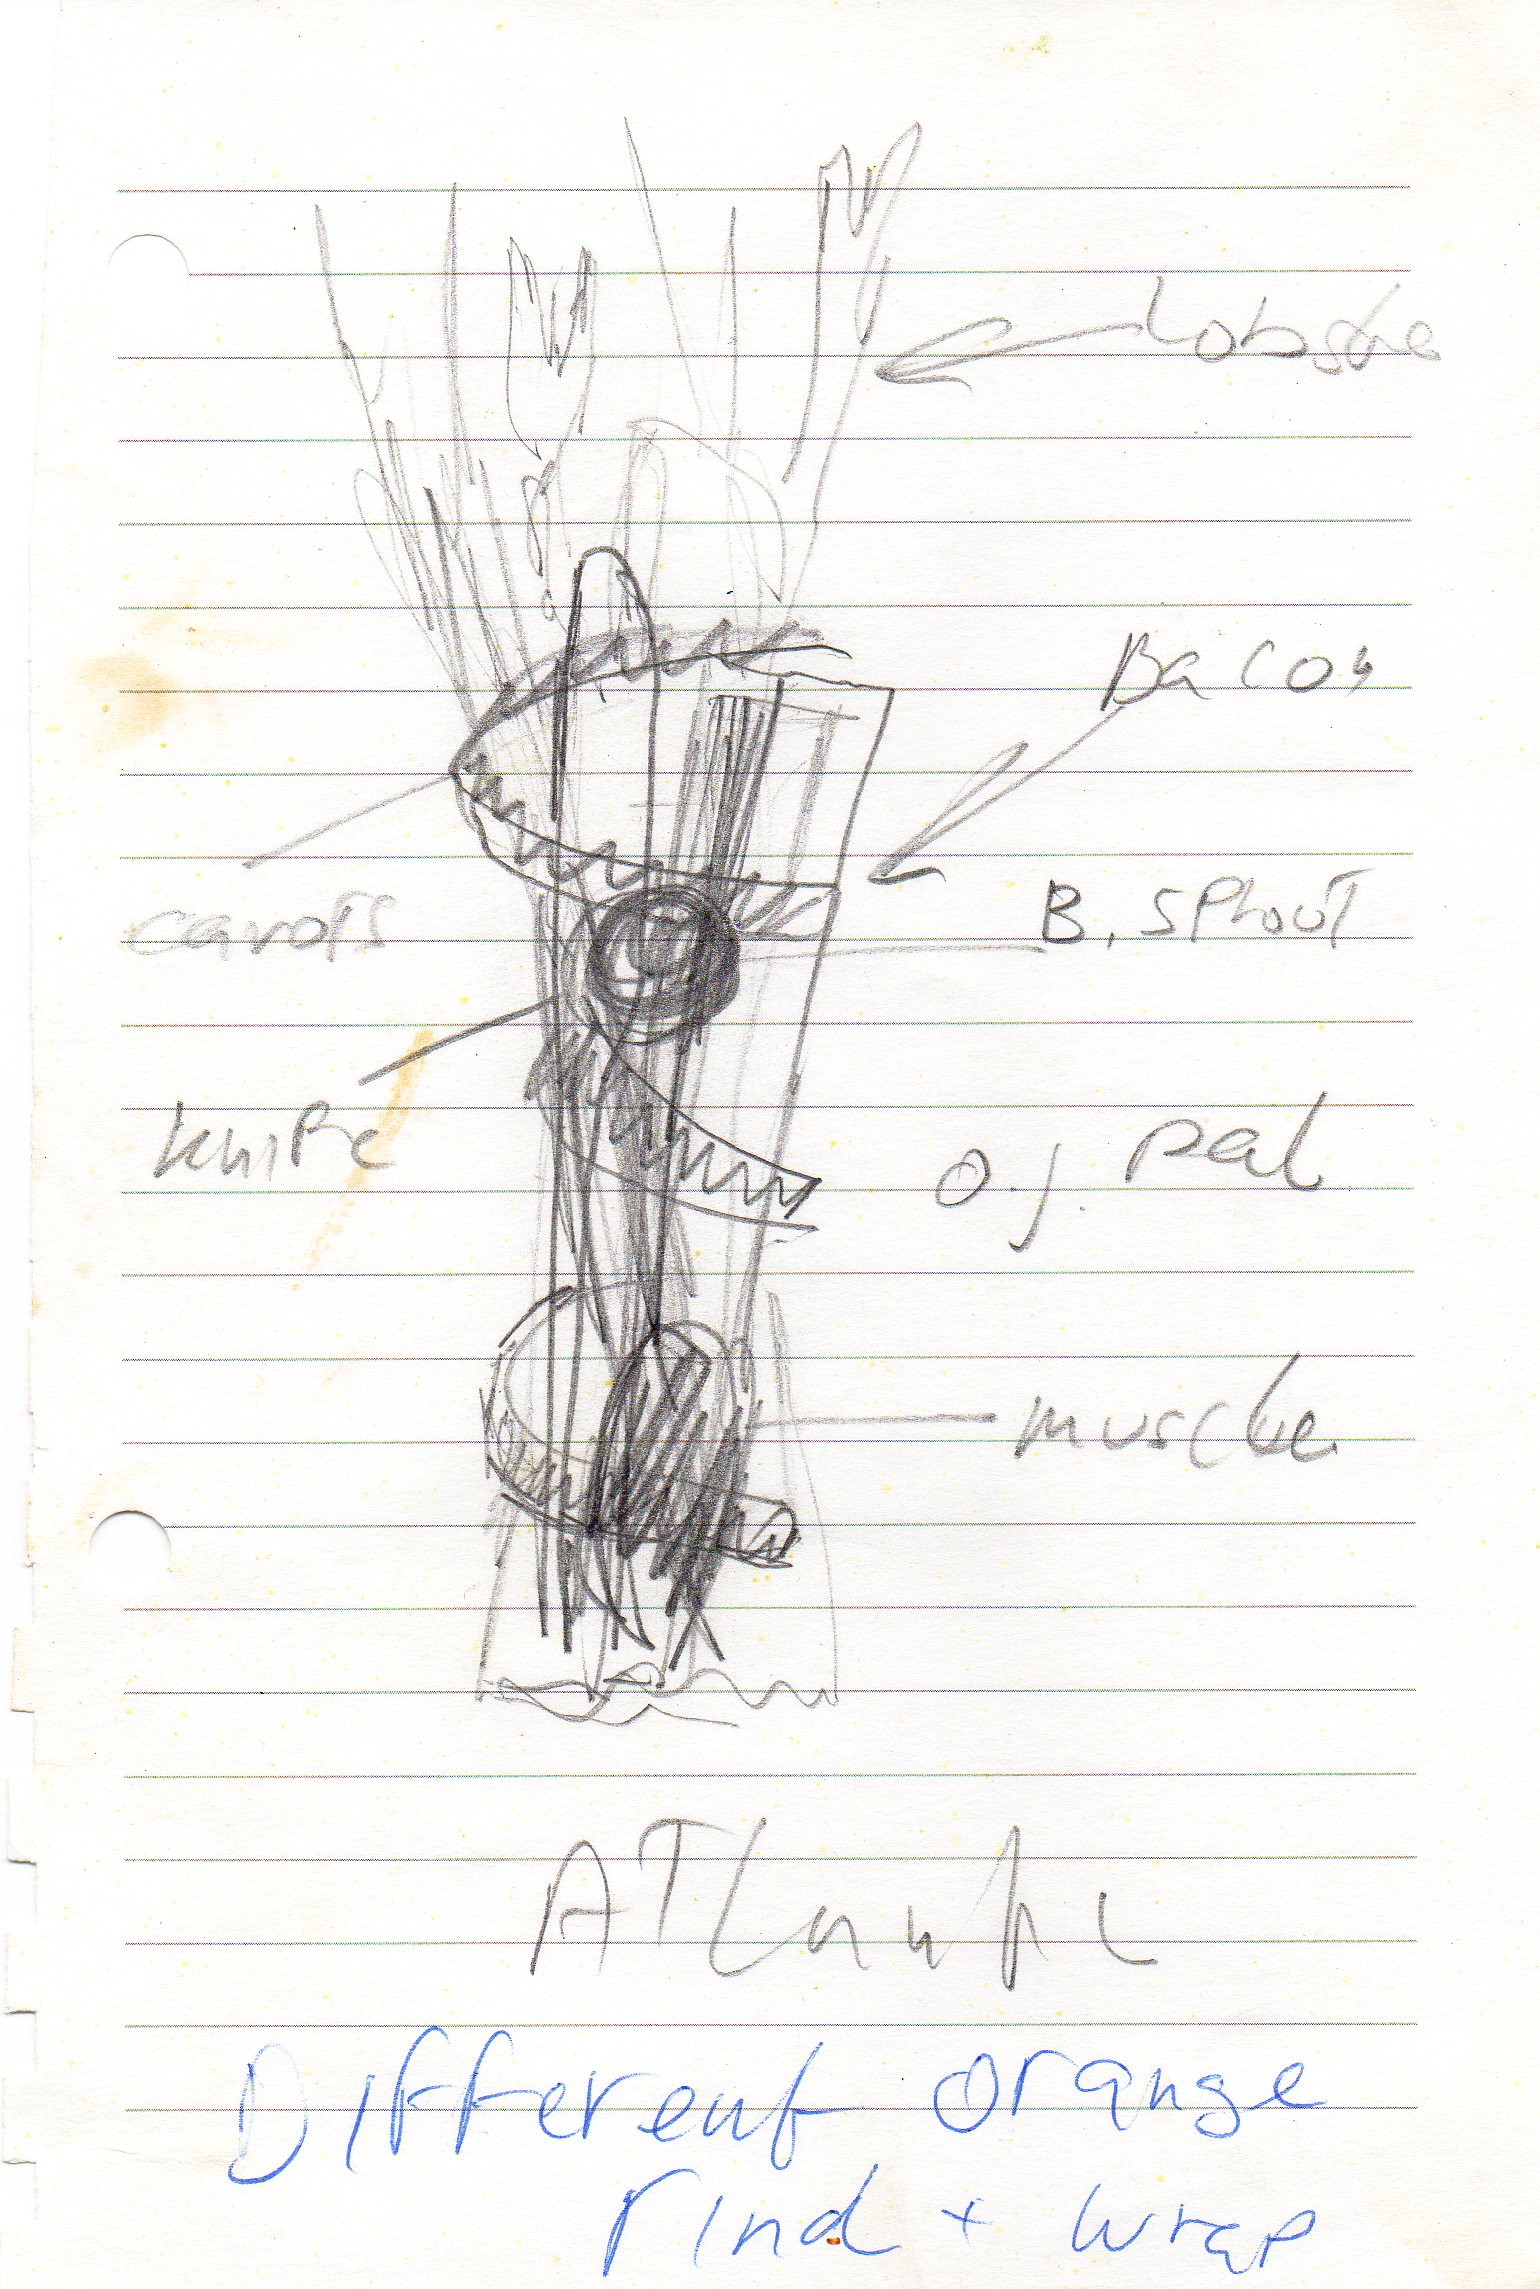 Lobster
Bacon
carots
B. Sprout
knife
O.J. Peal
muscle
ATLantic
Different orange
rind + wrap